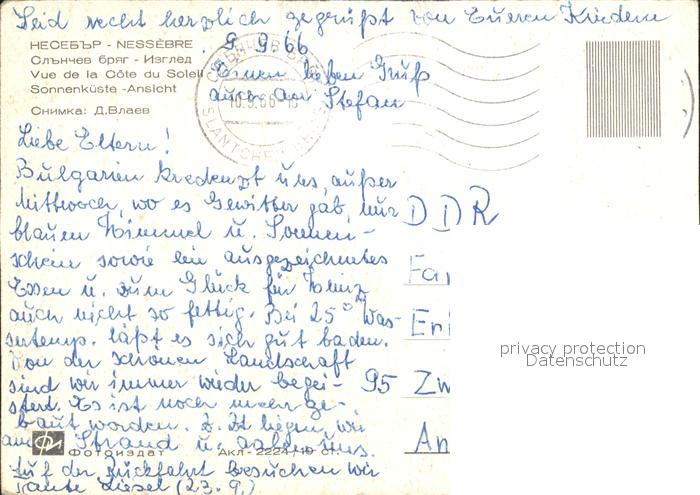 Seid recht herzlich gegrüßt von Eueren Kindern
НЕСЕБЪР - NESSÈBRE
9. 9. 66
Слънчев бряг - Изглед
Vue de la Côte du Soleil
Sonnenküste -Ansicht
Einen lieben Gruß
auch an Stefan
Снимка: Д.Влаев
Liebe Eltern!
Bulgarien kredenzt uns, außer
Mittwoch, wo es Gewitter gab, nur
blauen Himmel u. Sonnen-
schein sowie ein ausgezeichnetes
Essen u. zum Glück für Heinz
auch nicht so fettig. Bei 25° Was-
sertemp. läßt es sich gut baden.
Von der schönen Landschaft
sind wir immer wieder begei-
stert. Es ist noch mehr ge-
baut worden. Z. Zt liegen wir
am Strand u. aalen uns.
Auf der Rückfahrt besuchen wir
Tante Liesel (23. 9.)
DDR
Fa
Er
95 Zw
An
privacy protection
Datenschutz
Фотоиздат
Акл - 2224